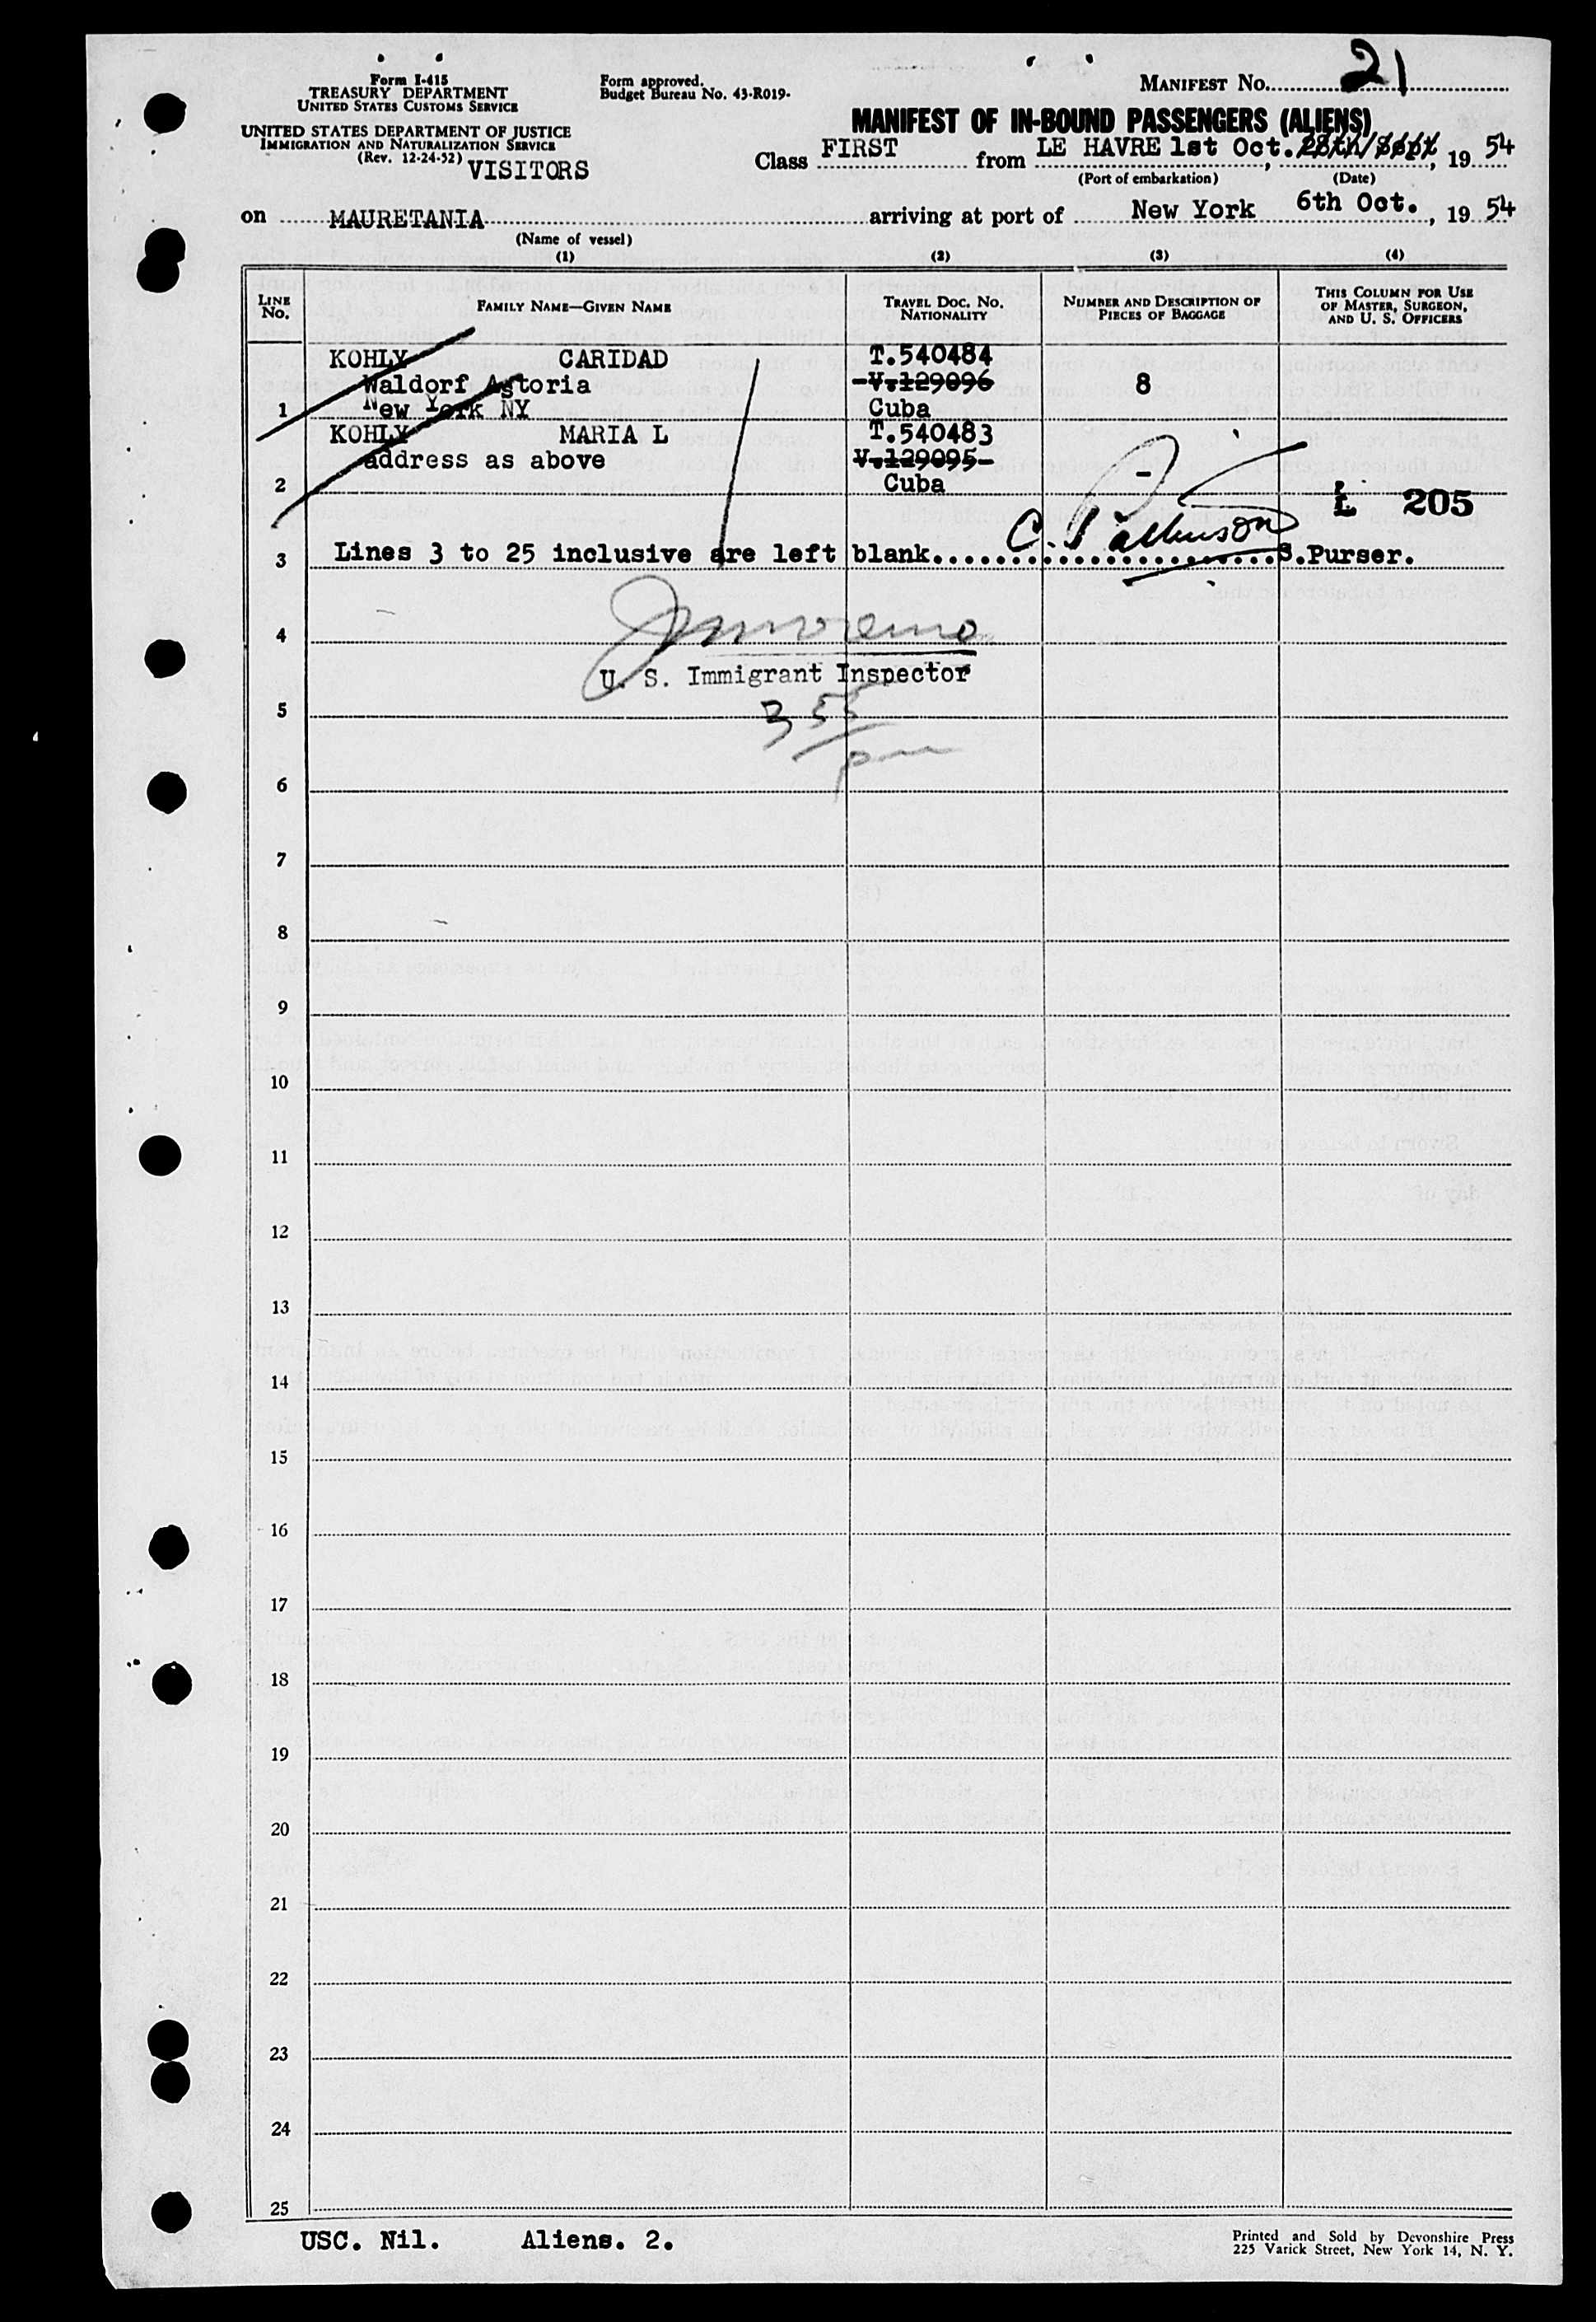 Form I-415
TREASURY DEPARTMENT
UNITED STATES CUSTOMS SERVICE
UNITED STATES DEPARTMENT OF JUSTICE
IMMIGRATION AND NATURALIZATION SERVICE
(Rev. 12-24-52)
VISITORS
Form approved.
Budget Bureau No. 43-R019-
MANIFEST No. 21
MANIFEST OF IN-BOUND PASSENGERS (ALIENS)
Class FIRST from LE HAVRE 1st Oct. 28th/Sept, 19 54
(Port of embarkation) (Date)
on MAURETANIA arriving at port of New York 6th Oct., 19 54
(Name of vessel)
(1) (2) (3) (4)
LINE No. FAMILY NAME—GIVEN NAME TRAVEL DOC. NO. NATIONALITY NUMBER AND DESCRIPTION OF PIECES OF BAGGAGE THIS COLUMN FOR USE OF MASTER, SURGEON, AND U. S. OFFICERS
KOHLY CARIDAD T.540484
Waldorf Astoria -V.129096 8
1 New York NY Cuba
KOHLY MARIA L T.540483
address as above V.129095- -
2 Cuba
£ 205
3 Lines 3 to 25 inclusive are left blank.......................S.Purser.
4
U. S. Immigrant Inspector
5 3 55
pm
6
7
8
9
10
11
12
13
14
15
16
17
18
19
20
21
22
23
24
25
USC. Nil. Aliens. 2.
Printed and Sold by Devonshire Press
225 Varick Street, New York 14, N. Y.